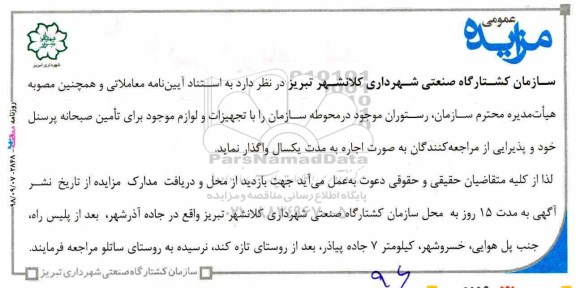 مزایده عمومی
شهرداری تبریز
سازمان کشتارگاه صنعتی شهرداری کلانشهر تبریز در نظر دارد به استناد آیین‌نامه معاملاتی و همچنین مصوبه
هیأت‌مدیره محترم سازمان، رستوران موجود درمحوطه سازمان را با تجهیزات و لوازم موجود برای تأمین صبحانه پرسنل
خود و پذیرایی از مراجعه‌کنندگان به صورت اجاره به مدت یکسال واگذار نماید.
ParsNamadData
لذا از کلیه متقاضیان حقیقی و حقوقی دعوت به‌عمل می‌آید جهت بازدید از محل و دریافت مدارک مزایده از تاریخ نشر
پایگاه اطلاع رسانی مناقصه و مزایده
آگهی به مدت ۱۵ روز به محل سازمان کشتارگاه صنعتی شهرداری کلانشهر تبریز واقع در جاده آذرشهر، بعد از پلیس راه،
جنب پل هوایی، خسروشهر، کیلومتر ۷ جاده پیاذر، بعد از روستای تازه کند، نرسیده به روستای ساتلو مراجعه فرمایند.
سازمان کشتارگاه صنعتی شهرداری تبریز